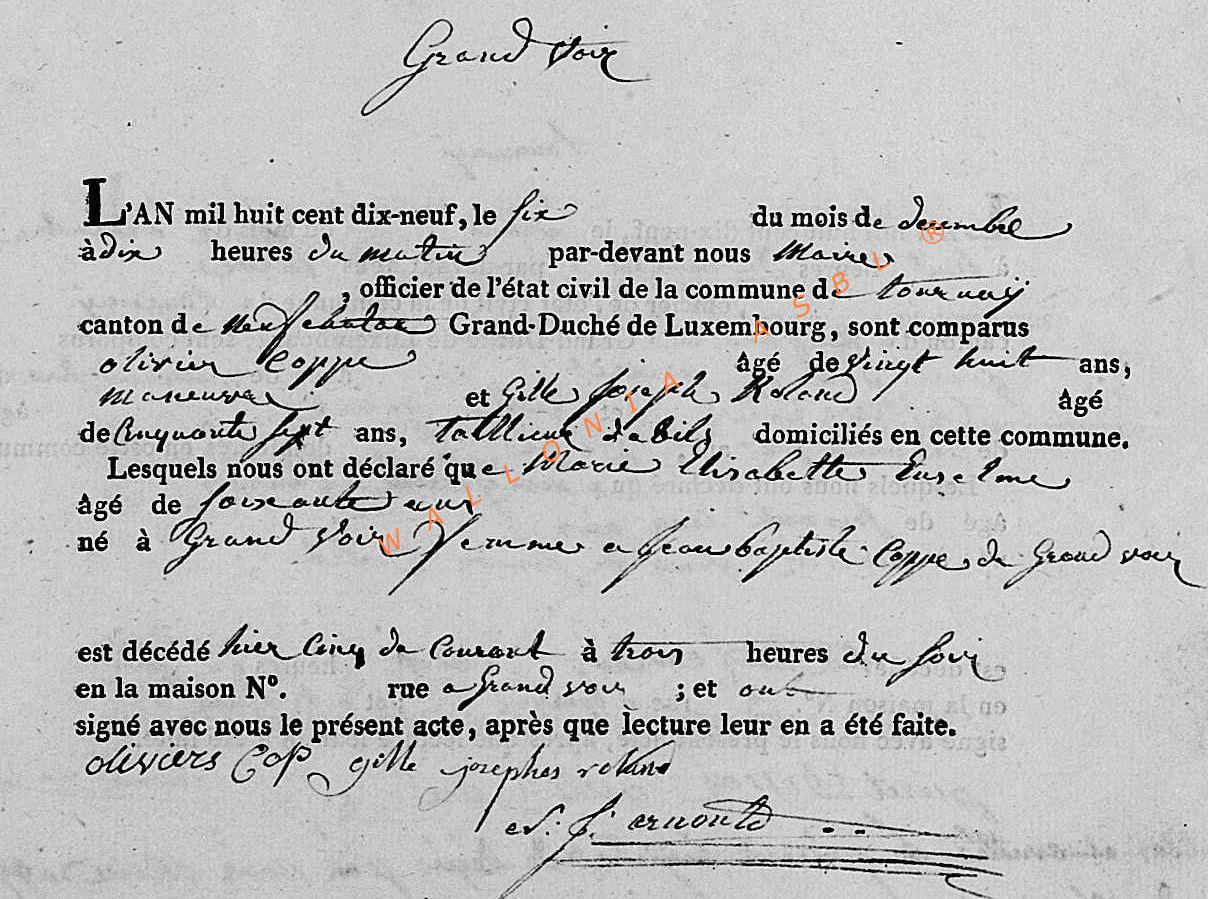 Grand Voir
L'AN mil huit cent dix-neuf, le six du mois de decembre
à dix heures du matin par-devant nous Maire
, officier de l'état civil de la commune de tournay
canton de neufchateau Grand-Duché de Luxembourg, sont comparus
olivier Coppe âgé de vingt huit ans,
maneuvre et Gille Joseph Roland âgé
de Cinquante sept ans, taillieur dabils domiciliés en cette commune.
Lesquels nous ont déclaré que Marie Elisabette Enselme
âgé de soixante ans
né à Grand Voir femme a Jean baptiste Coppe de Grand voir
est décédé hier Cinq du Courant à trois heures du soir
en la maison N°. rue a Grand voir ; et ont
signé avec nous le présent acte, après que lecture leur en a été faite.
oliviers Cop gille josephes roland
arnould
WALLONIA ASBL ®